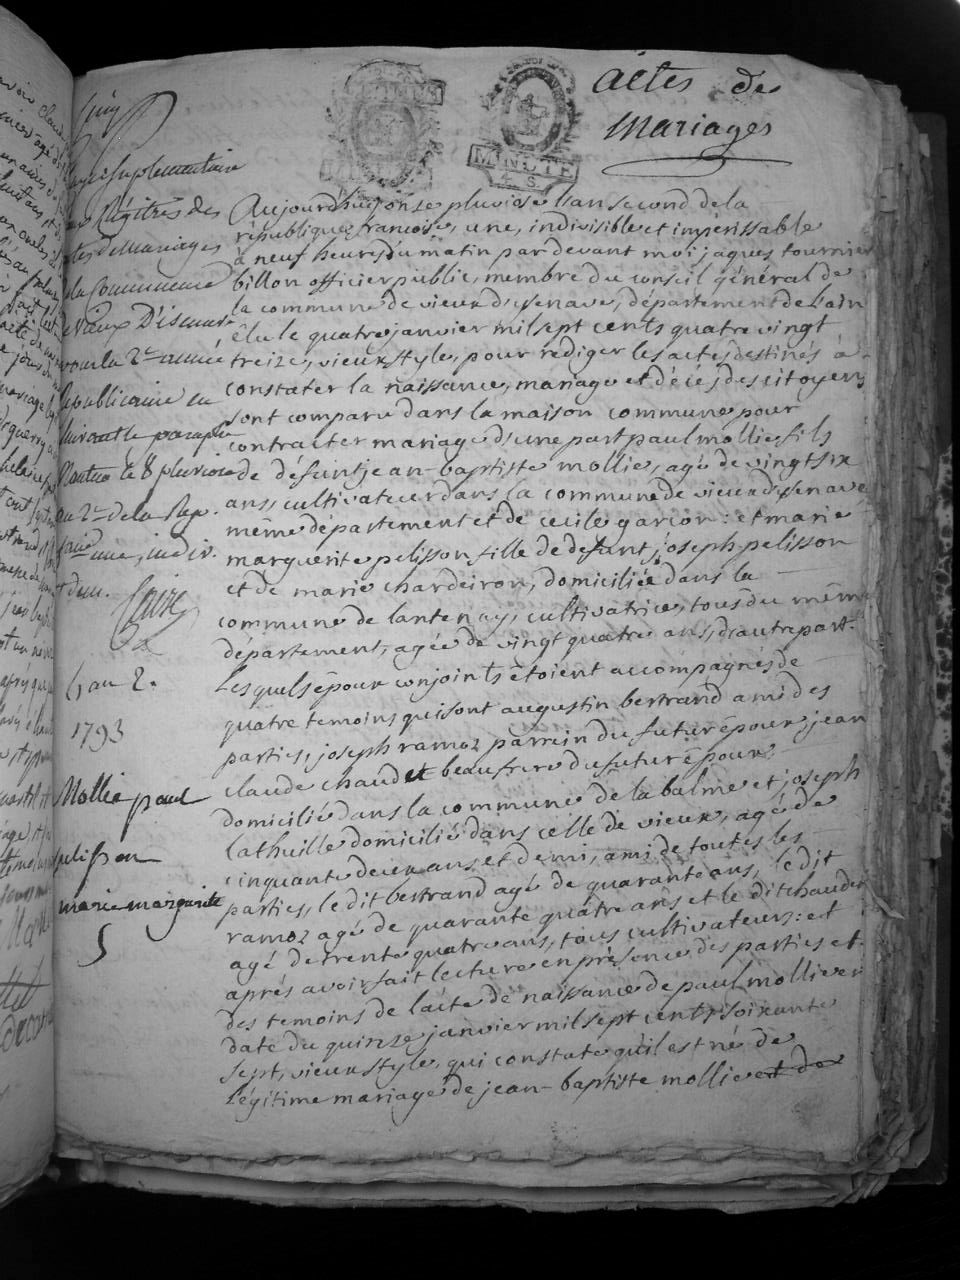 actes de
Mariages
MINUTE
4. S.
page supplémentaire
régitres des
actes de mariages
la Commune
Vieux D'isenave
pour la 2e année
républicaine
suivant le paraphe
Nantua le 8 pluviose
an 2e de la Rép.
une, indiv.
an 2.
1793
Mollie paul
pelisson
marie margueritte
5
Aujourdhuy onze pluviose l'an second de la
république francoise, une, indivisible et impérissable
à neuf heures du matin par devant moi jaques tournier
billon officier public, membre du conseil général de
la commune de vieux d'ysenave, département de l'ain
élu le quatre janvier mil sept cents quatre vingt
treize, vieux style, pour rédiger les actes destinés à
constater la naissance, mariage et décés des citoyens
sont comparu dans la maison commune pour
contracter mariage d'une part paul mollie, fils
de défunt jean-baptiste mollie, agé de vingt six
ans, cultivateur dans la commune de vieux d'ysenave
même département et de cecile garcon : et marie
marguerite pelisson fille de defunt joseph pelisson
et de marie chardeiron, domiciliée dans la
commune de lantenay, cultivatrice, tous du même
département, agée de vingt quatre ans, d'autre part.
Lesquels époux conjoints étoient accompagnés de
quatre temoins qui sont augustin bertrand ami des
parties, joseph ramoz parrein du futur époux, jean
claude chaudet beaufrere du futur époux
domicilié dans la commune de la balme et joseph
lathuille domicilié dans celle de vieux, agé de
cinquante deux ans et demi, ami de toutes les
parties, le dit bertrand agé de quarante ans, le dit
ramoz agé de quarante quatre ans et le dit chaudet
agé de trente quatre ans, tous cultivateurs : et
aprés avoir fait lecture en présence des parties et
des temoins de l'acte de naissance de paul mollie en
date du quinze janvier mil sept cents soixante
sept, vieux style, qui constate qu'il est né de
légitime mariage de jean-baptiste mollie et de